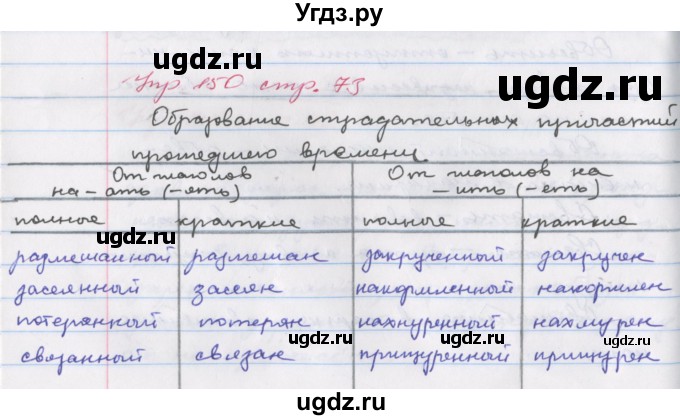 Угдз.ру
Упр 150 стр. 73
Образование страдательных причастий
прошедшего времени
От глаголов на -ать (-еть)
От глаголов на -ить (-еть)
полные краткие полные краткие
размешанный размешан закрученный закручен
засеянный засеян накормленный накормлен
потерянный потерян нахнуренный нахмурен
связанный связан прищуренный прищурен
ugdz.ru
ugdz.ru
ugdz.ru
ugdz.ru
ugdz.ru
ugdz.ru
ugdz.ru
ugdz.ru
ugdz.ru
ugdz.ru